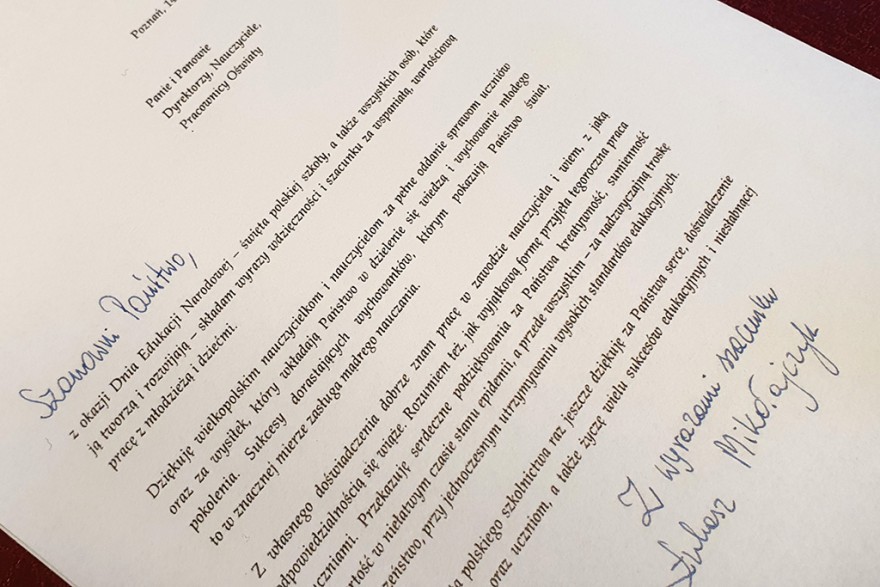 Poznań, 14
Panie i Panowie
Dyrektorzy, Nauczyciele,
Pracownicy Oświaty
Szanowni Państwo,
z okazji Dnia Edukacji Narodowej – święta polskiej szkoły, a także wszystkich osób, które
ją tworzą i rozwijają – składam wyrazy wdzięczności i szacunku za wspaniałą, wartościową
pracę z młodzieżą i dziećmi.
Dziękuję wielkopolskim nauczycielkom i nauczycielom za pełne oddanie sprawom uczniów
oraz za wysiłek, który wkładają Państwo w dzielenie się wiedzą i wychowanie młodego
pokolenia. Sukcesy dorastających wychowanków, którym pokazują Państwo świat,
to w znacznej mierze zasługa mądrego nauczania.
Z własnego doświadczenia dobrze znam pracę w zawodzie nauczyciela i wiem, z jaką
odpowiedzialnością się wiąże. Rozumiem też, jak wyjątkową formę przyjęła tegoroczna praca
uczniami. Przekazuję serdeczne podziękowania za Państwa kreatywność, sumienność
artość w niełatwym czasie stanu epidemii, a przede wszystkim – za nadzwyczajną troskę
zeństwo, przy jednoczesnym utrzymywaniu wysokich standardów edukacyjnych.
polskiego szkolnictwa raz jeszcze dziękuję za Państwa serce, doświadczenie
oraz uczniom, a także życzę wielu sukcesów edukacyjnych i niesłabnącej
Z wyrazami szacunku
Łukasz Mikołajczyk